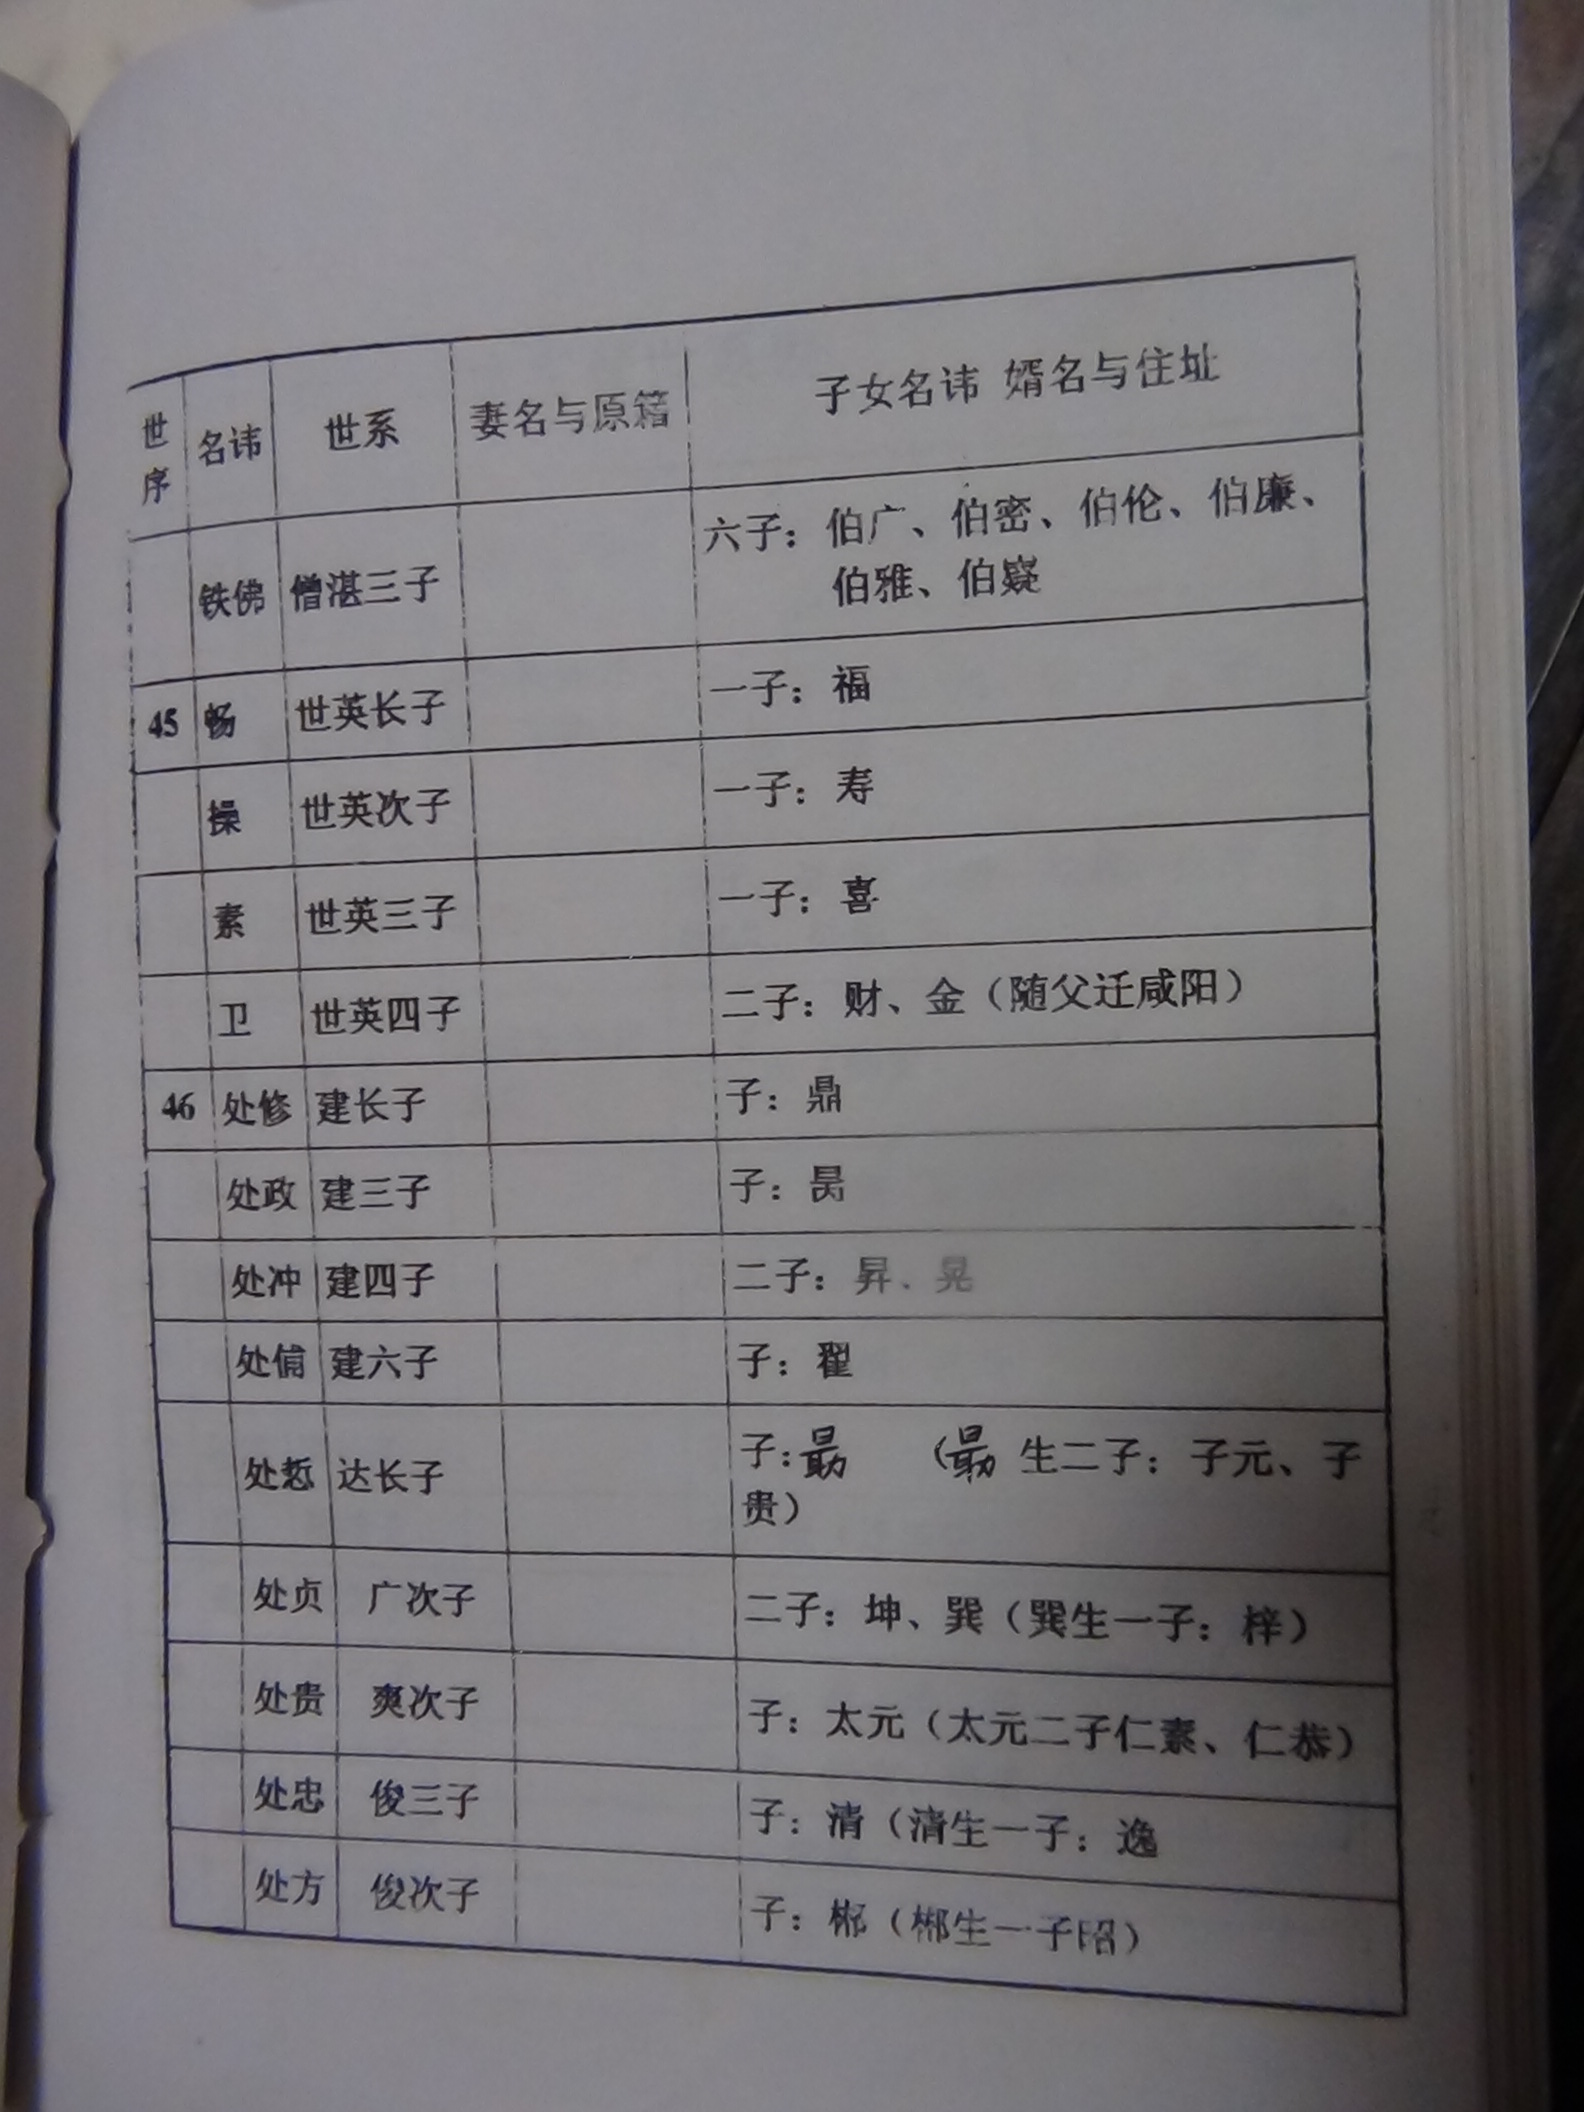 世序 名讳 世系 妻名与原籍 子女名讳 婿名与住址
铁佛 僧湛三子 六子：伯广、伯密、伯伦、伯廉、
伯雅、伯嶷
45 畅 世英长子 一子：福
操 世英次子 一子：寿
素 世英三子 一子：喜
卫 世英四子 二子：财、金（随父迁咸阳）
46 处修 建长子 子：鼎
处政 建三子 子：昺
处冲 建四子 二子：昇、晃
处俌 建六子 子：翟
处悊 达长子 子：勗 （勗 生二子：子元、子
贵）
处贞 广次子 二子：坤、巽（巽生一子：梓）
处贵 爽次子 子：太元（太元二子仁素、仁恭）
处忠 俊三子 子：清（清生一子：逸
处方 俊次子 子：郴（郴生一子昭）